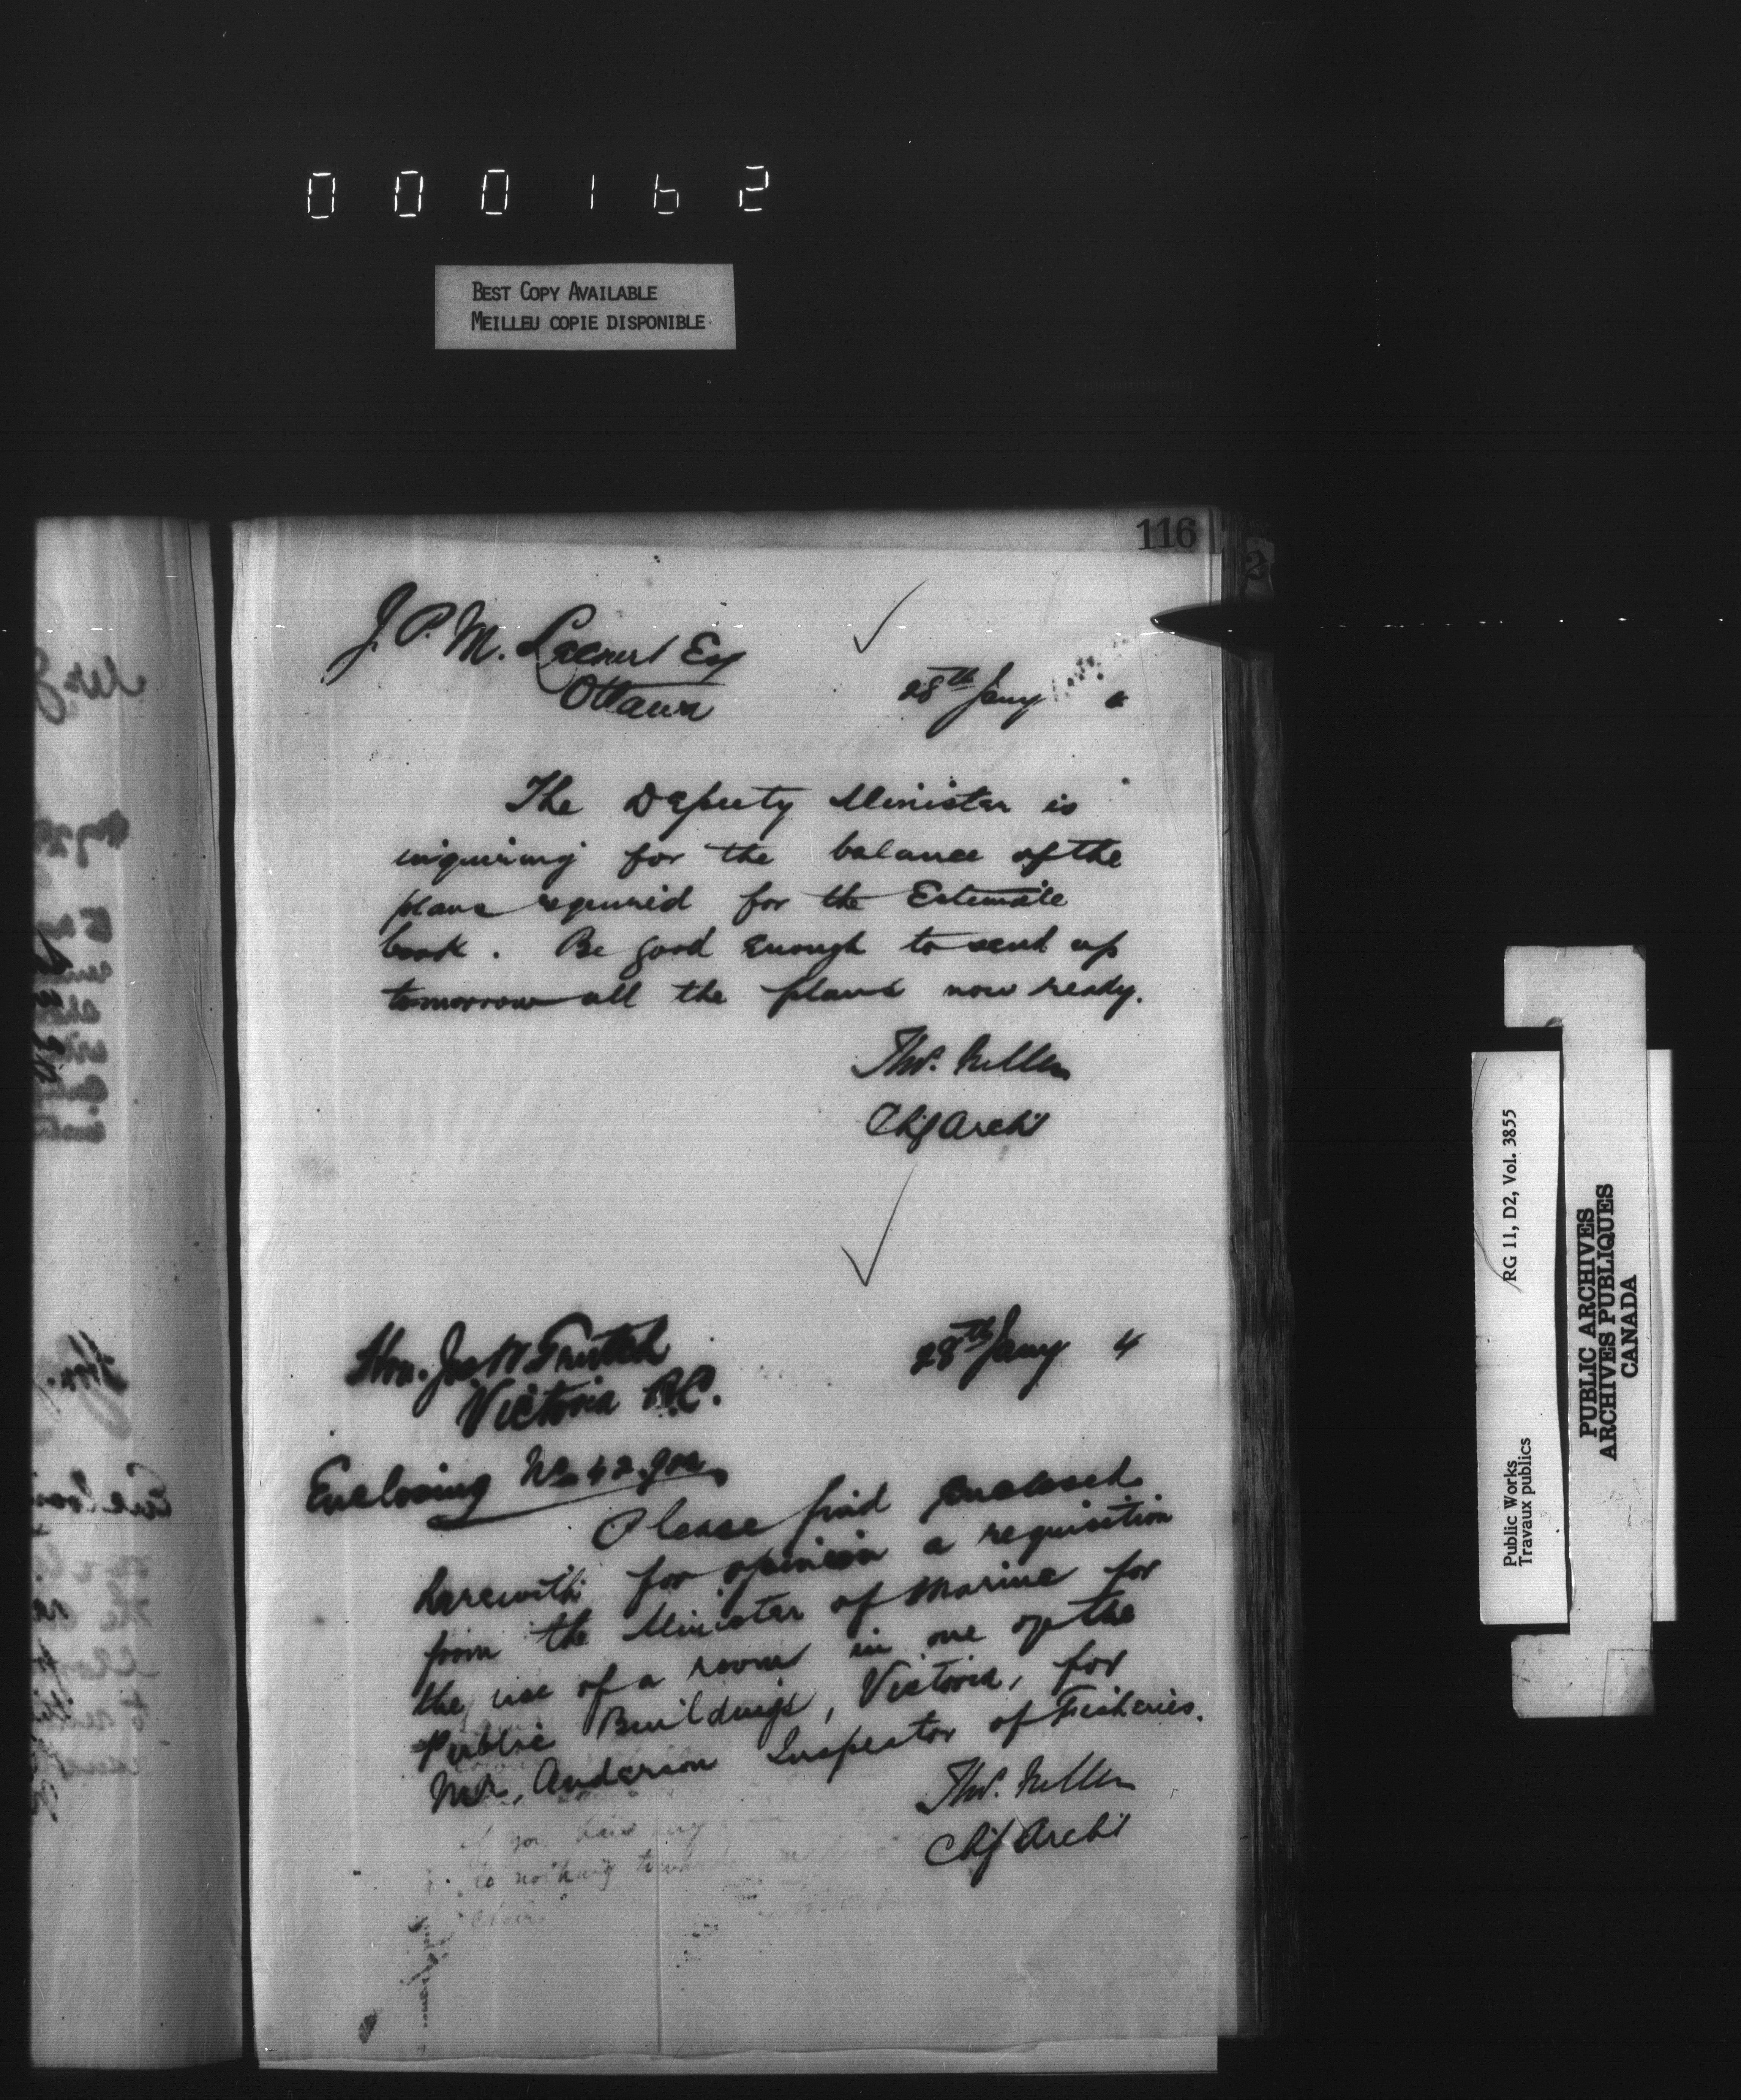 000162
BEST COPY AVAILABLE
MEILLEU COPIE DISPONIBLE
116
J. P. M. Lecourt Esq
Ottawa
28th Jany
The Deputy Minister is
inquiring for the balance of the
plans required for the Estimate
book. Be good enough to send up
tomorrow all the plans now ready.
Thos. Fuller
Chf Archt
Hon. Jos W Trutch
Victoria B.C.
28th Jany 4
Enclosing No 42.902
Please find enclosed
herewith for opinion a requisition
from the Minister of Marine for
the use of a room in one of the
Public Buildings, Victoria, for
Mr. Anderson Inspector of Fisheries.
Thos. Fuller
Chf Archt
if you have
to nothing towards
RG 11, D2, Vol. 3855
Public Works
Travaux publics
PUBLIC ARCHIVES
ARCHIVES PUBLIQUES
CANADA